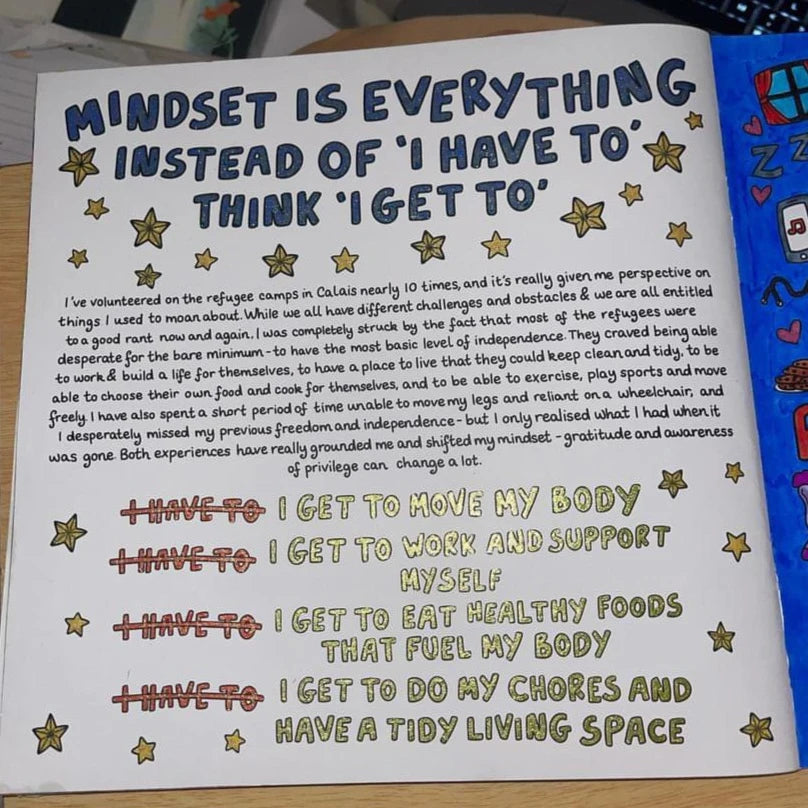 MINDSET IS EVERYTHING
INSTEAD OF 'I HAVE TO'
THINK 'I GET TO'
I've volunteered on the refugee camps in Calais nearly 10 times, and it's really given me perspective on
things I used to moan about. While we all have different challenges and obstacles & we are all entitled
to a good rant now and again, I was completely struck by the fact that most of the refugees were
desperate for the bare minimum - to have the most basic level of independence. They craved being able
to work & build a life for themselves, to have a place to live that they could keep clean and tidy, to be
able to choose their own food and cook for themselves, and to be able to exercise, play sports and move
freely. I have also spent a short period of time unable to move my legs and reliant on a wheelchair, and
I desperately missed my previous freedom and independence - but I only realised what I had when it
was gone. Both experiences have really grounded me and shifted my mindset - gratitude and awareness
of privilege can change a lot.
I HAVE TO I GET TO MOVE MY BODY
I HAVE TO I GET TO WORK AND SUPPORT
MYSELF
I HAVE TO I GET TO EAT HEALTHY FOODS
THAT FUEL MY BODY
I HAVE TO I GET TO DO MY CHORES AND
HAVE A TIDY LIVING SPACE
Z Z